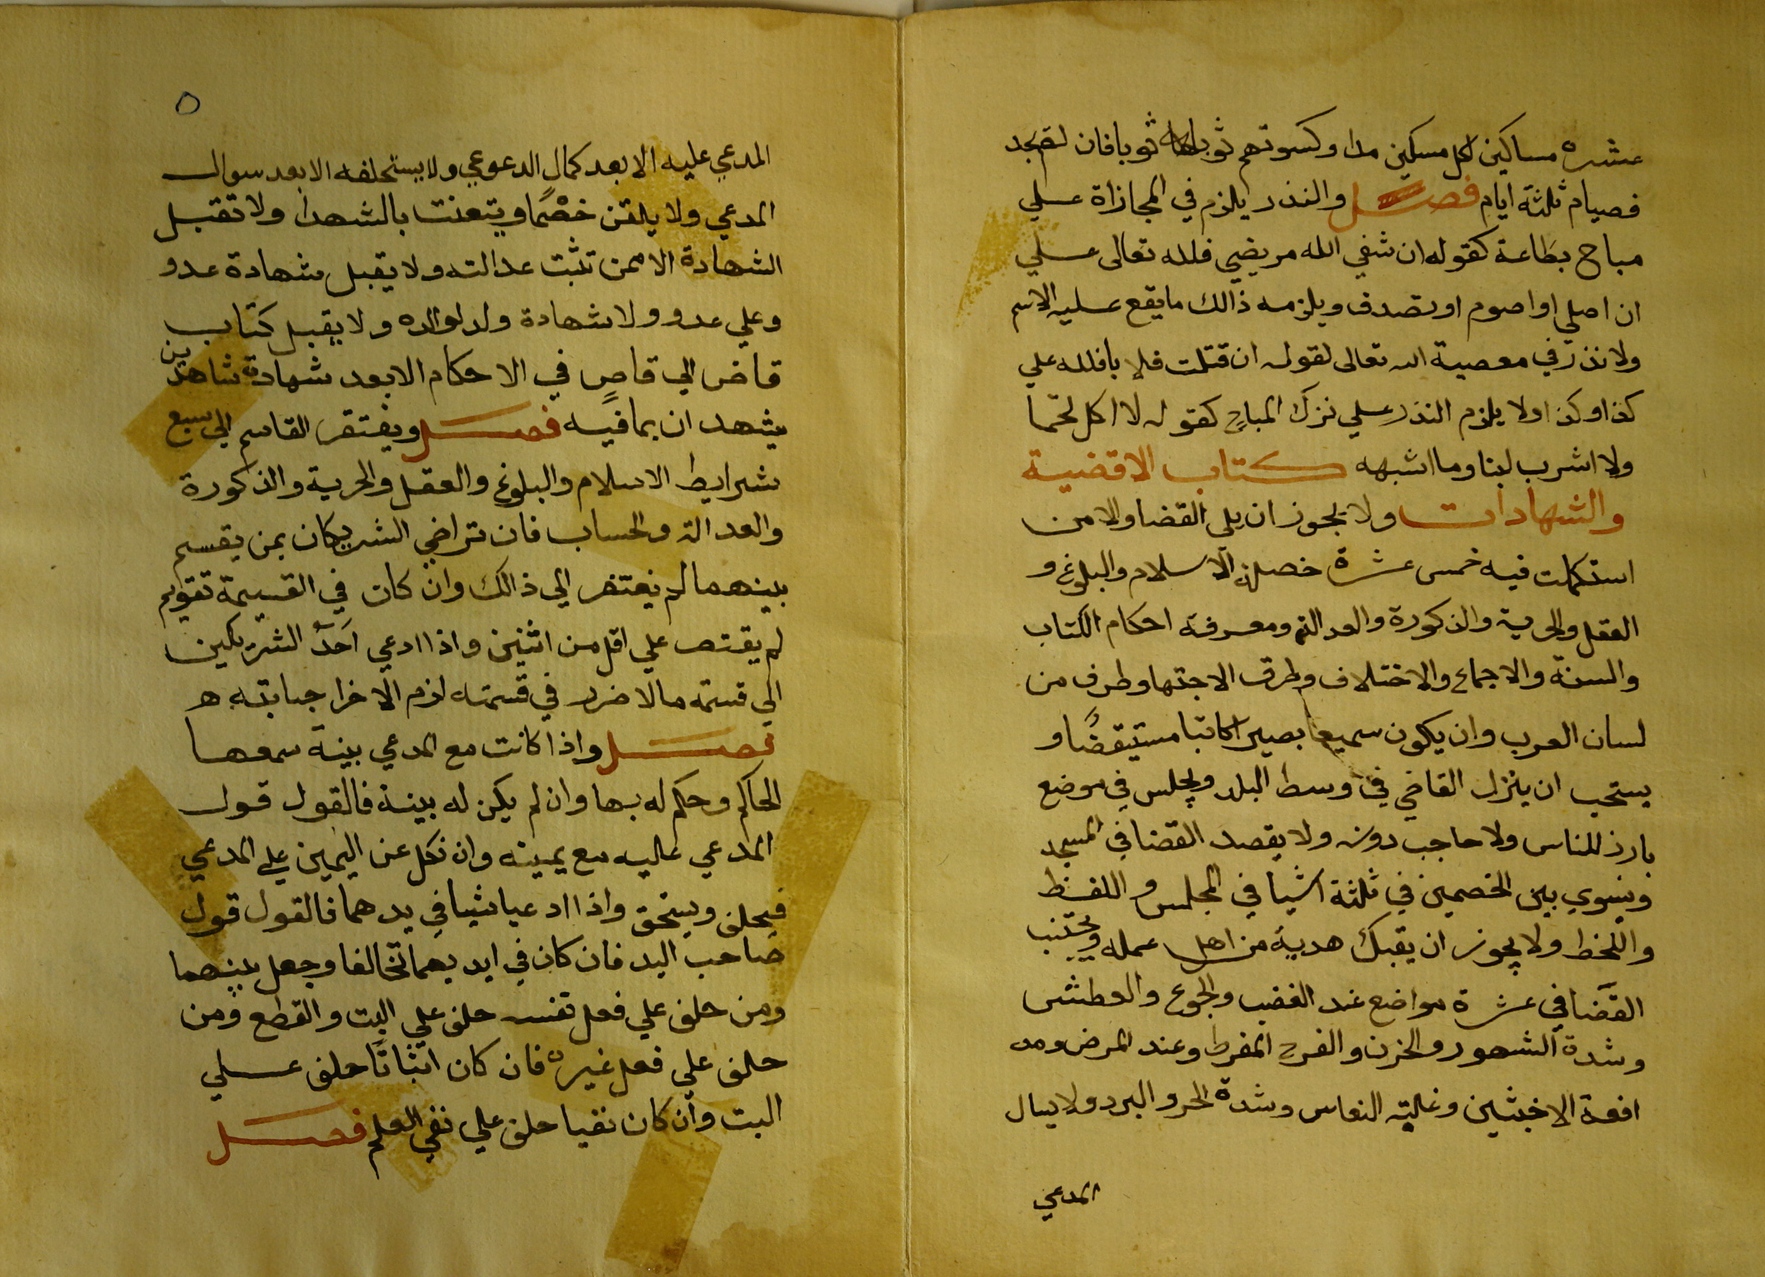 عشره مساكين لكل مسكين مدا وكسوتهم ثوبا ثوبا فان لم يجد
فصيام ثلثة ايام فصل والنذر يلزم في المجازاة علي
مباح بطاعة كقوله ان شفي الله مريضي فلله تعالى علي
ان اصلي او اصوم او تصدف ويلزمه ذالك ما يقع عليه الاسم
ولا نذر في معصية الله تعالى لقوله ان قتلت فلا بافلله علي
كذا وكذا ولا يلزم النذر علي ترك المباح كقوله لا اكل لحما
ولا اشرب لبنا وما اشبهه كتاب الاقضية
والشهادات ولا يجوز ان يلى القضا والا من
استكملت فيه خمس عشرة خصلة الاسلام والبلوغ و
العقل والحرية والذكورة والعدالة ومعرفة احكام الكتاب
والسنة والاجماع والاختلاف وطرق الاجتهاد وطرف من
لسان العرب وان يكون سميعا بصيرا كاتبا مستيقضا و
يستحب ان ينزل القاضي في وسط البلد ويجلس في موضع
بارز للناس ولا حاجب دونه ولا يقصد القضا في المسجد
ويسوي بين الخصمين في ثلثة اشيا في المجلس واللفظ
واللحظ ولا يجوز ان يقبل هدية من اهل عمله ويجتنب
القضا في عشرة مواضع عند الغضب والجوع والعطش
وشدة الشهور والحزن والفرح المفرط وعند المرض ومد
افعة الاخبثين وغلبة النعاس وشدة الحر والبرد ولا يسال
المدعي
٥
المدعي عليه الا بعد كمال الدعوعي ولا يستحلفه الا بعد سوال
المدعي ولا يلقن خصما ويتعنت بالشهدا ولا تقبل
الشهادة الا ممن تثبت عدالته ولا يقبل شهادة عدو
وعلي عدو ولا شهادة ولد لوالده ولا يقبل كتاب
قاض الي قاص في الاحكام الا بعد شهادة شاهدين
يشهدان بما فيه فصل ويفتقر القاسم الي سبع
شرايط الاسلام والبلوغ والعقل والحرية والذكورة
والعدالة والحساب فان تراضي الشريكان بمن يقسم
بينهما لم يفتقر الي ذالك وان كان في القسمة تقويم
لم يقتص علي اقل من اثنين واذا ادعي احد الشريكين
الي قسمته ما لا ضرر في قسمته لزم الاخر اجابته ه
فصل واذا كانت مع المدعي بينة سمعها
الحاكم وحكم له بها وان لم يكن له بينة فالقول قول
المدعي عليه مع يمينه وان نكل عن اليمين علي المدعي
فيحلف ويستحق واذا ادعيا شيا في يدهما فالقول قول
صاحب اليد فان كان في ايديهما تحالفا وجعل بينهما
ومن حلف علي فعل نفسه حلف علي البت والقطع ومن
حلف علي فعل غيره فان كان اثباتا حلف علي
البت وان كان نفيا حلف علي نفي العلم فصل